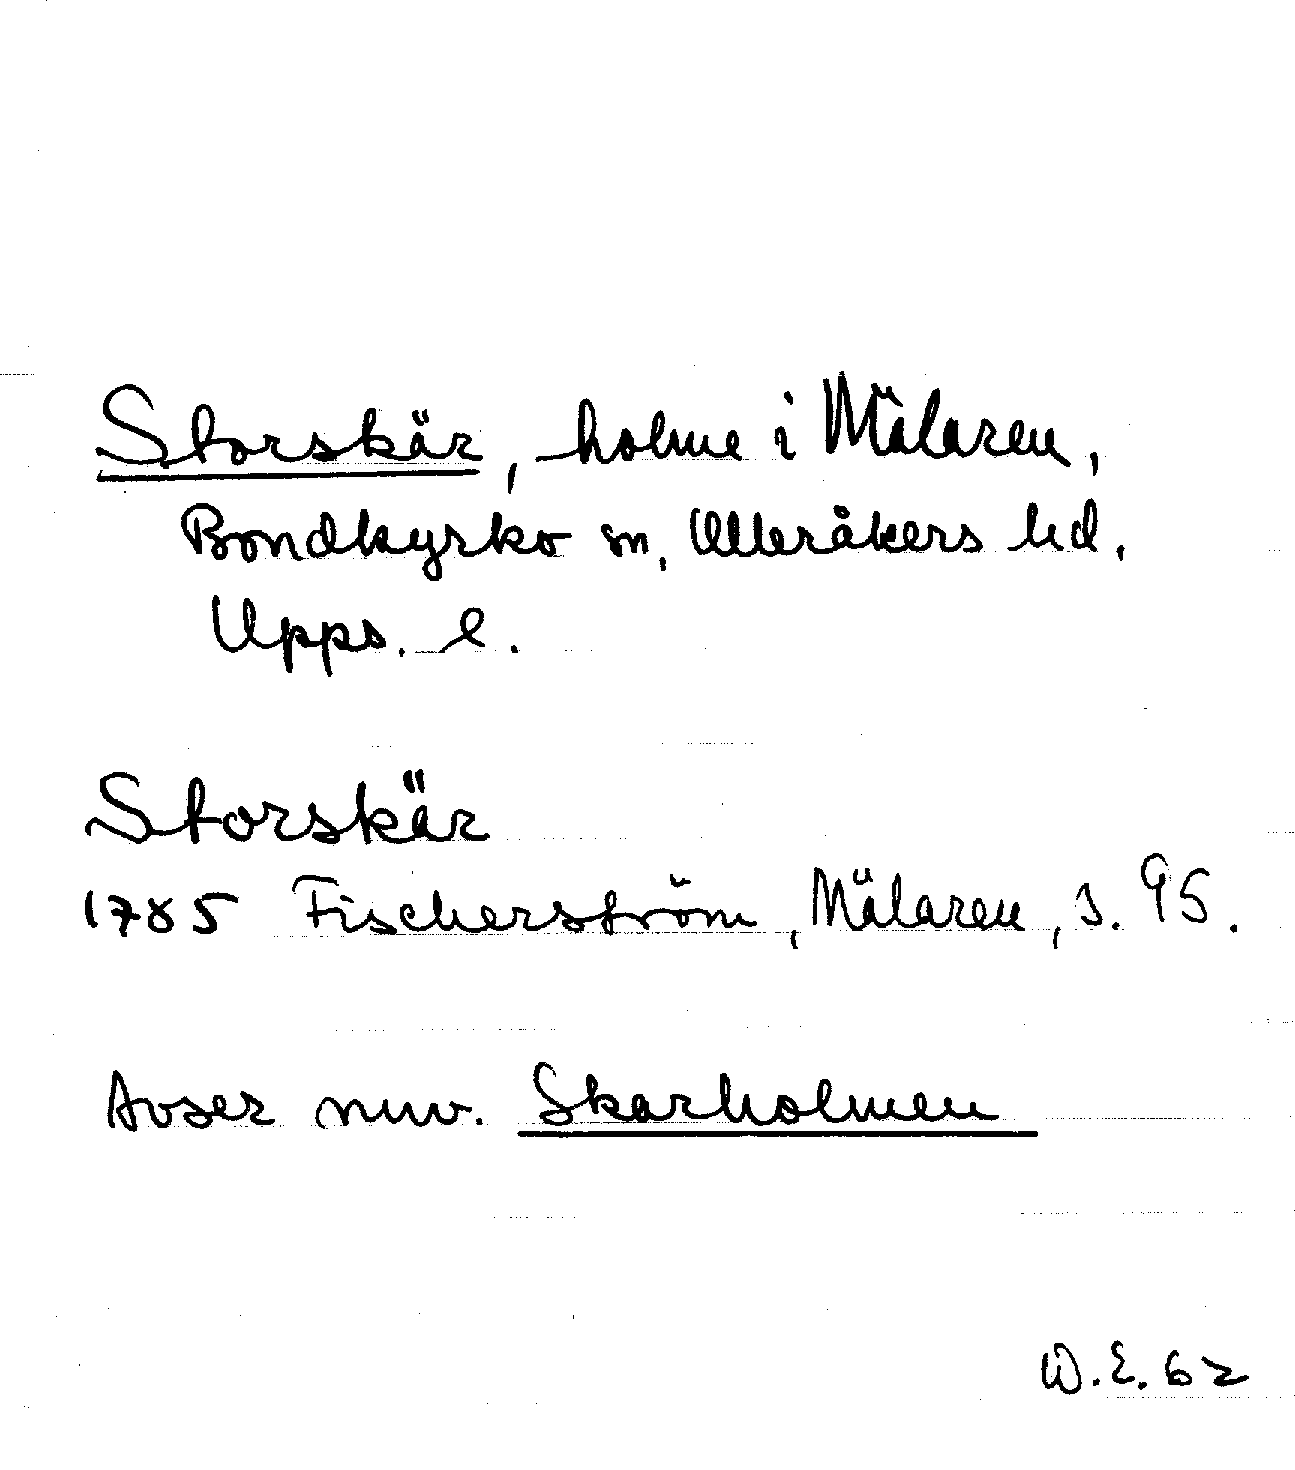 Storskär, holme i Mälaren,
Bondkyrko sn, Ulleråkers hd,
Upps. l.
Storskär
1785 Fischerström, Mälaren, s. 95.
Avser nuv. Skarholmen
W.E. 62